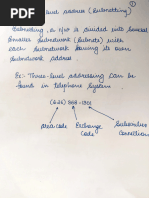 ①
level address (Subnetting)
Subnetting, a n/w is divided into several
smaller subnetwork (Subnets) with
each subnetwork having its own
subnetwork address.
Ex:- Three-level addressing can be
found in telephone system.
(626) 868-1911
Area code Exchange Code Subscriber Connection